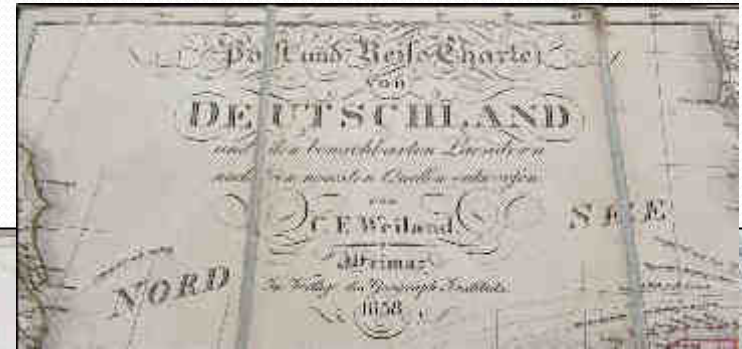 Post und Reise Charte
von
DEUTSCHLAND
und den benachbarten Laendern
nach den neuesten Quellen entworfen
von
C. F. Weiland
Weimar
Im Verlage des Geograph. Instituts
NORD SEE